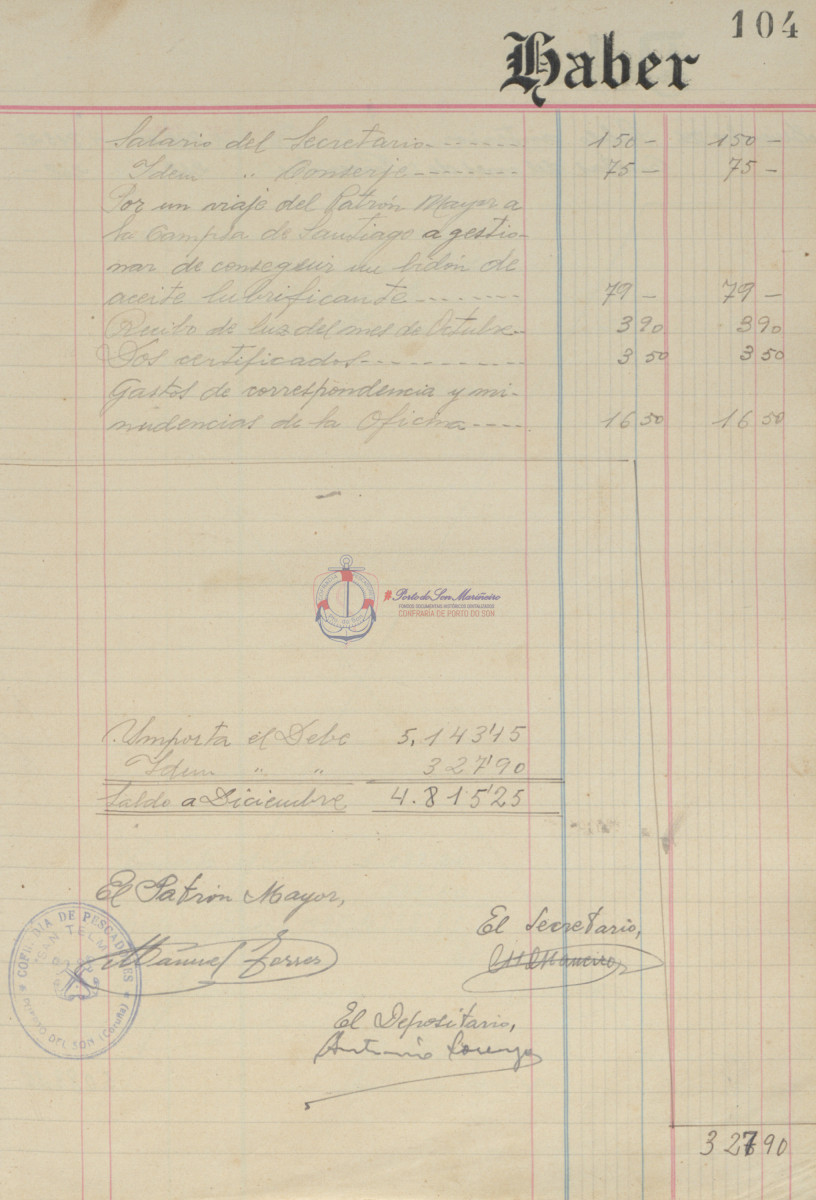 104
Haber
Salario del Secretario------- 150- 150-
Idem " Conserje-------- 75- 75-
Por un viaje del Patrón Mayor a
la Campsa de Santiago a gestio-
nar de conseguir un bidón de
aceite lubrificante-------- 79- 79-
Recibo de luz del mes de Octubre-- 3 90 3 90
Dos certificados----------- 3 50 3 50
Gastos de correspondencia y mi-
nudencias de la Oficina----- 16 50 16 50
#PortodoSonMariñeiro
FONDOS DOCUMENTAIS HISTÓRICOS DIXITALIZADOS
CONFRARÍA DE PORTO DO SON
Ymporta el Debe 5,143'15
Idem " " 327'90
Saldo a Diciembre 4.815'25
El Patrón Mayor,
El Secretario,
Manuel
COFRADIA DE PESCADORES
SAN TELMO
PUERTO DEL SON (Coruña)
El Depositario,
Antonio Lorenzo
327 90